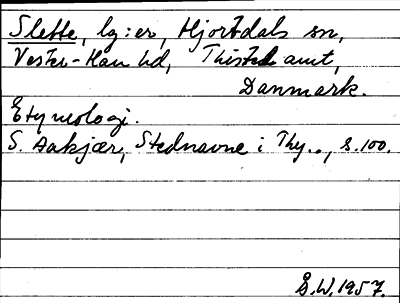 Slette, by:er, Hjortdals sn,
Vester-Han hd, Thisted amt,
Danmark.
Etymologi.
S. Aakjær, Stednavne i Thy.., s.100.
S.W. 1957.